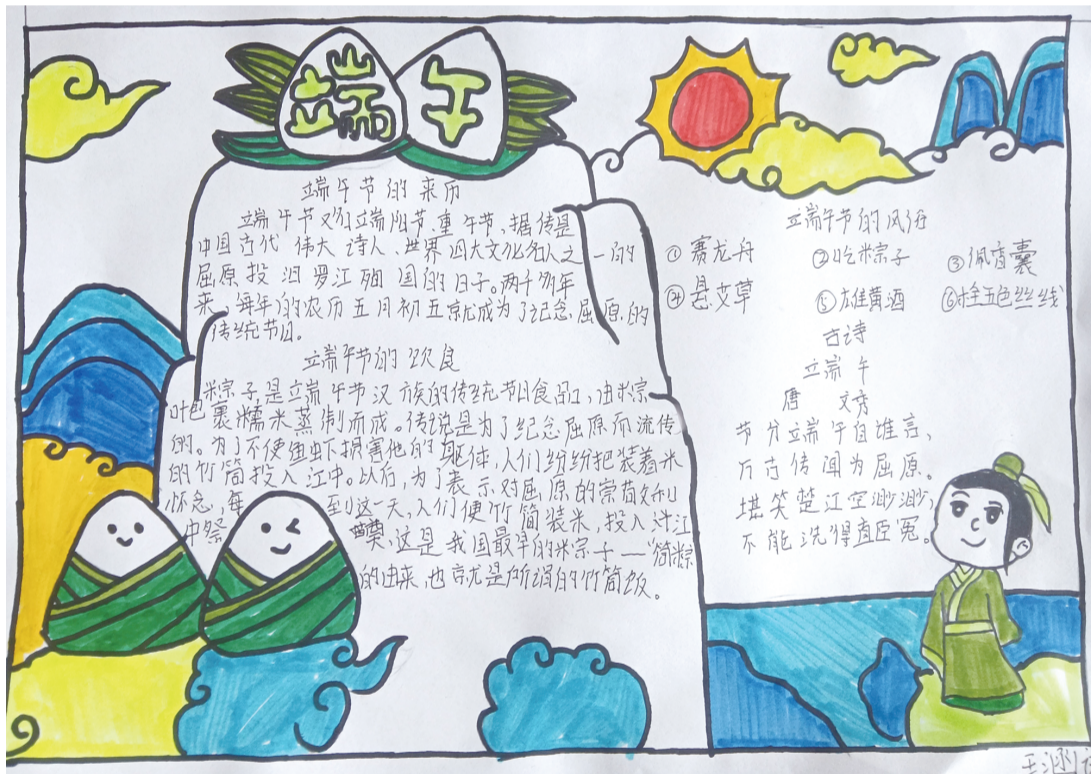 端午
端午节的来历
端午节又称端阳节、重午节,据传是
中国古代伟大诗人、世界四大文化名人之一的
屈原投汨罗江殉国的日子。两千多年
来,每年的农历五月初五就成为了纪念屈原的
传统节日。
端午节的饮食
粽子,是端午节汉族的传统节日食品,由粽
叶包裹糯米蒸制而成。传说是为了纪念屈原而流传
的。为了不使鱼虾损害他的躯体,人们纷纷把装着米
的竹筒投入江中。以后,为了表示对屈原的崇敬和
怀念,每到这一天,人们便竹筒装米,投入汴江
中祭奠,这是我国最早的粽子—“筒粽
的由来,也就是所谓的竹筒饭。
端午节的风俗
①赛龙舟 ②吃粽子 ③佩香囊
④悬艾草 ⑤雄黄酒 ⑥拴五色丝线
古诗
端午
唐 文秀
节分端午自谁言,
万古传闻为屈原。
堪笑楚江空渺渺,
不能洗得直臣冤。